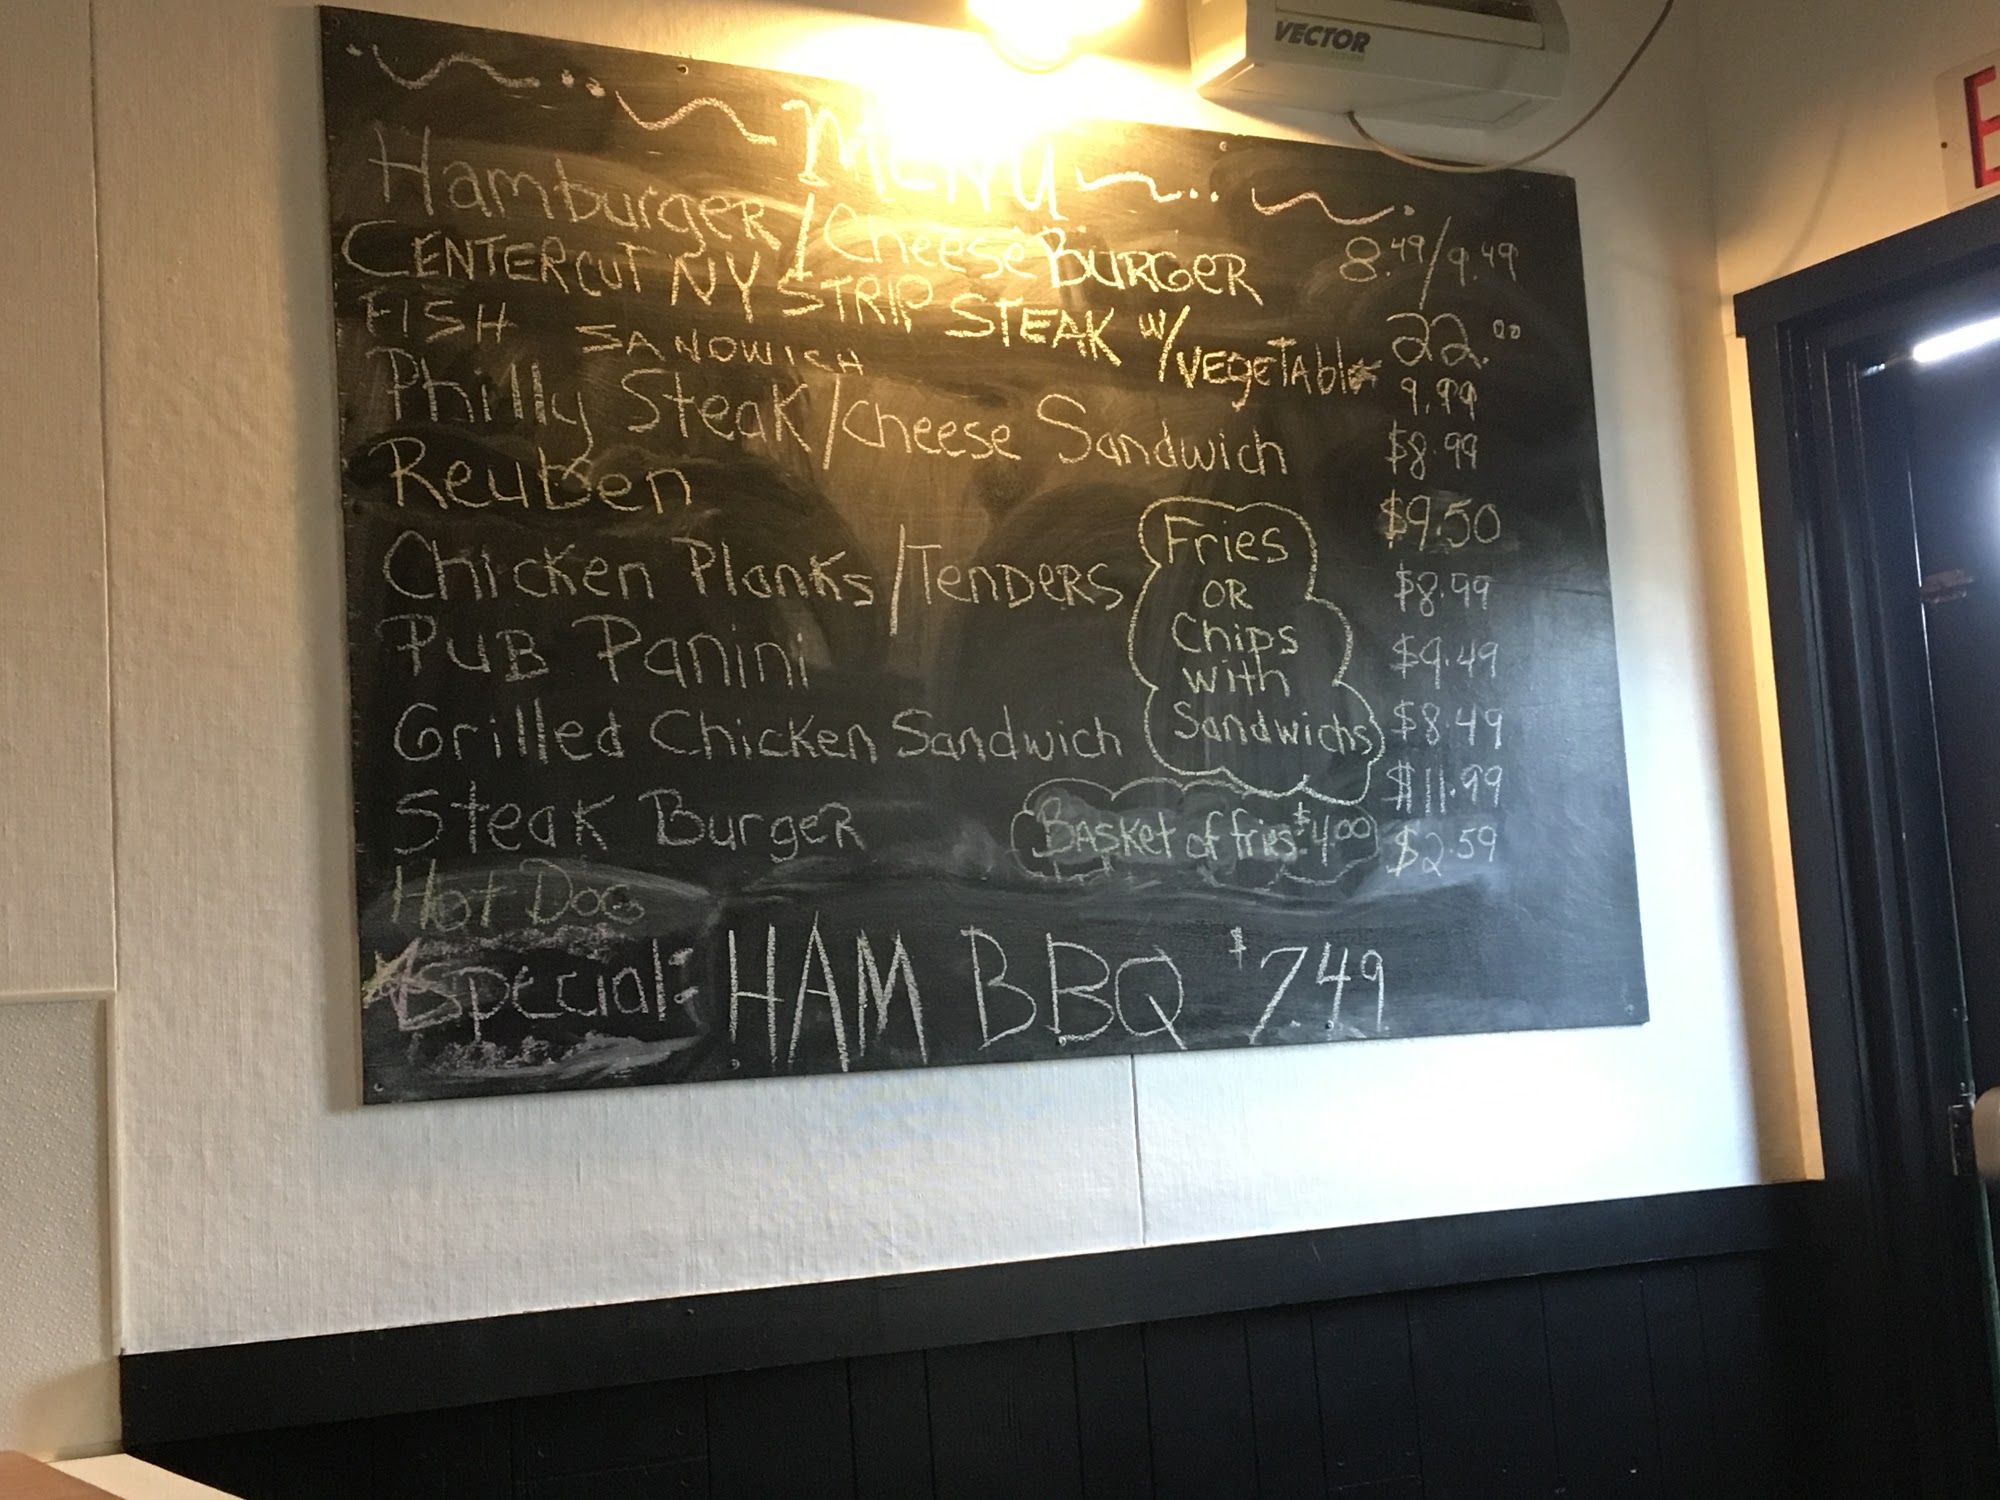 VECTOR
E
MENU
Hamburger/CheeseBURGER 8.49/9.49
CENTERCUT NY STRIP STEAK W/VEGETABle 22.00
FISH SANDWICH 9.99
Philly Steak/Cheese Sandwich $8.99
Reuben $9.50
Chicken Planks/TENDERS $8.99
PUB Panini $9.49
Grilled Chicken Sandwich $8.49
Steak Burger $11.99
Hot Dog $2.59
Fries
OR
Chips
with
Sandwichs
Basket of fries $4.00
Special: HAM BBQ $7.49